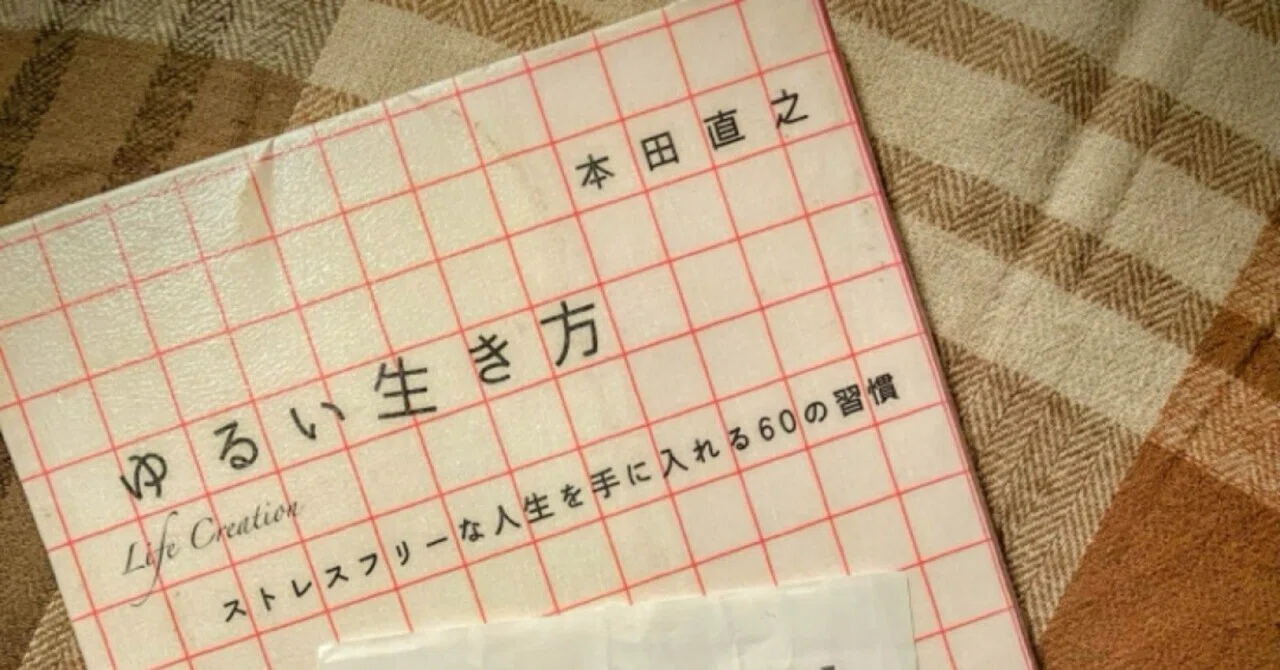 本田直之
ゆるい生き方
Life Creation
ストレスフリーな人生を手に入れる60の習慣